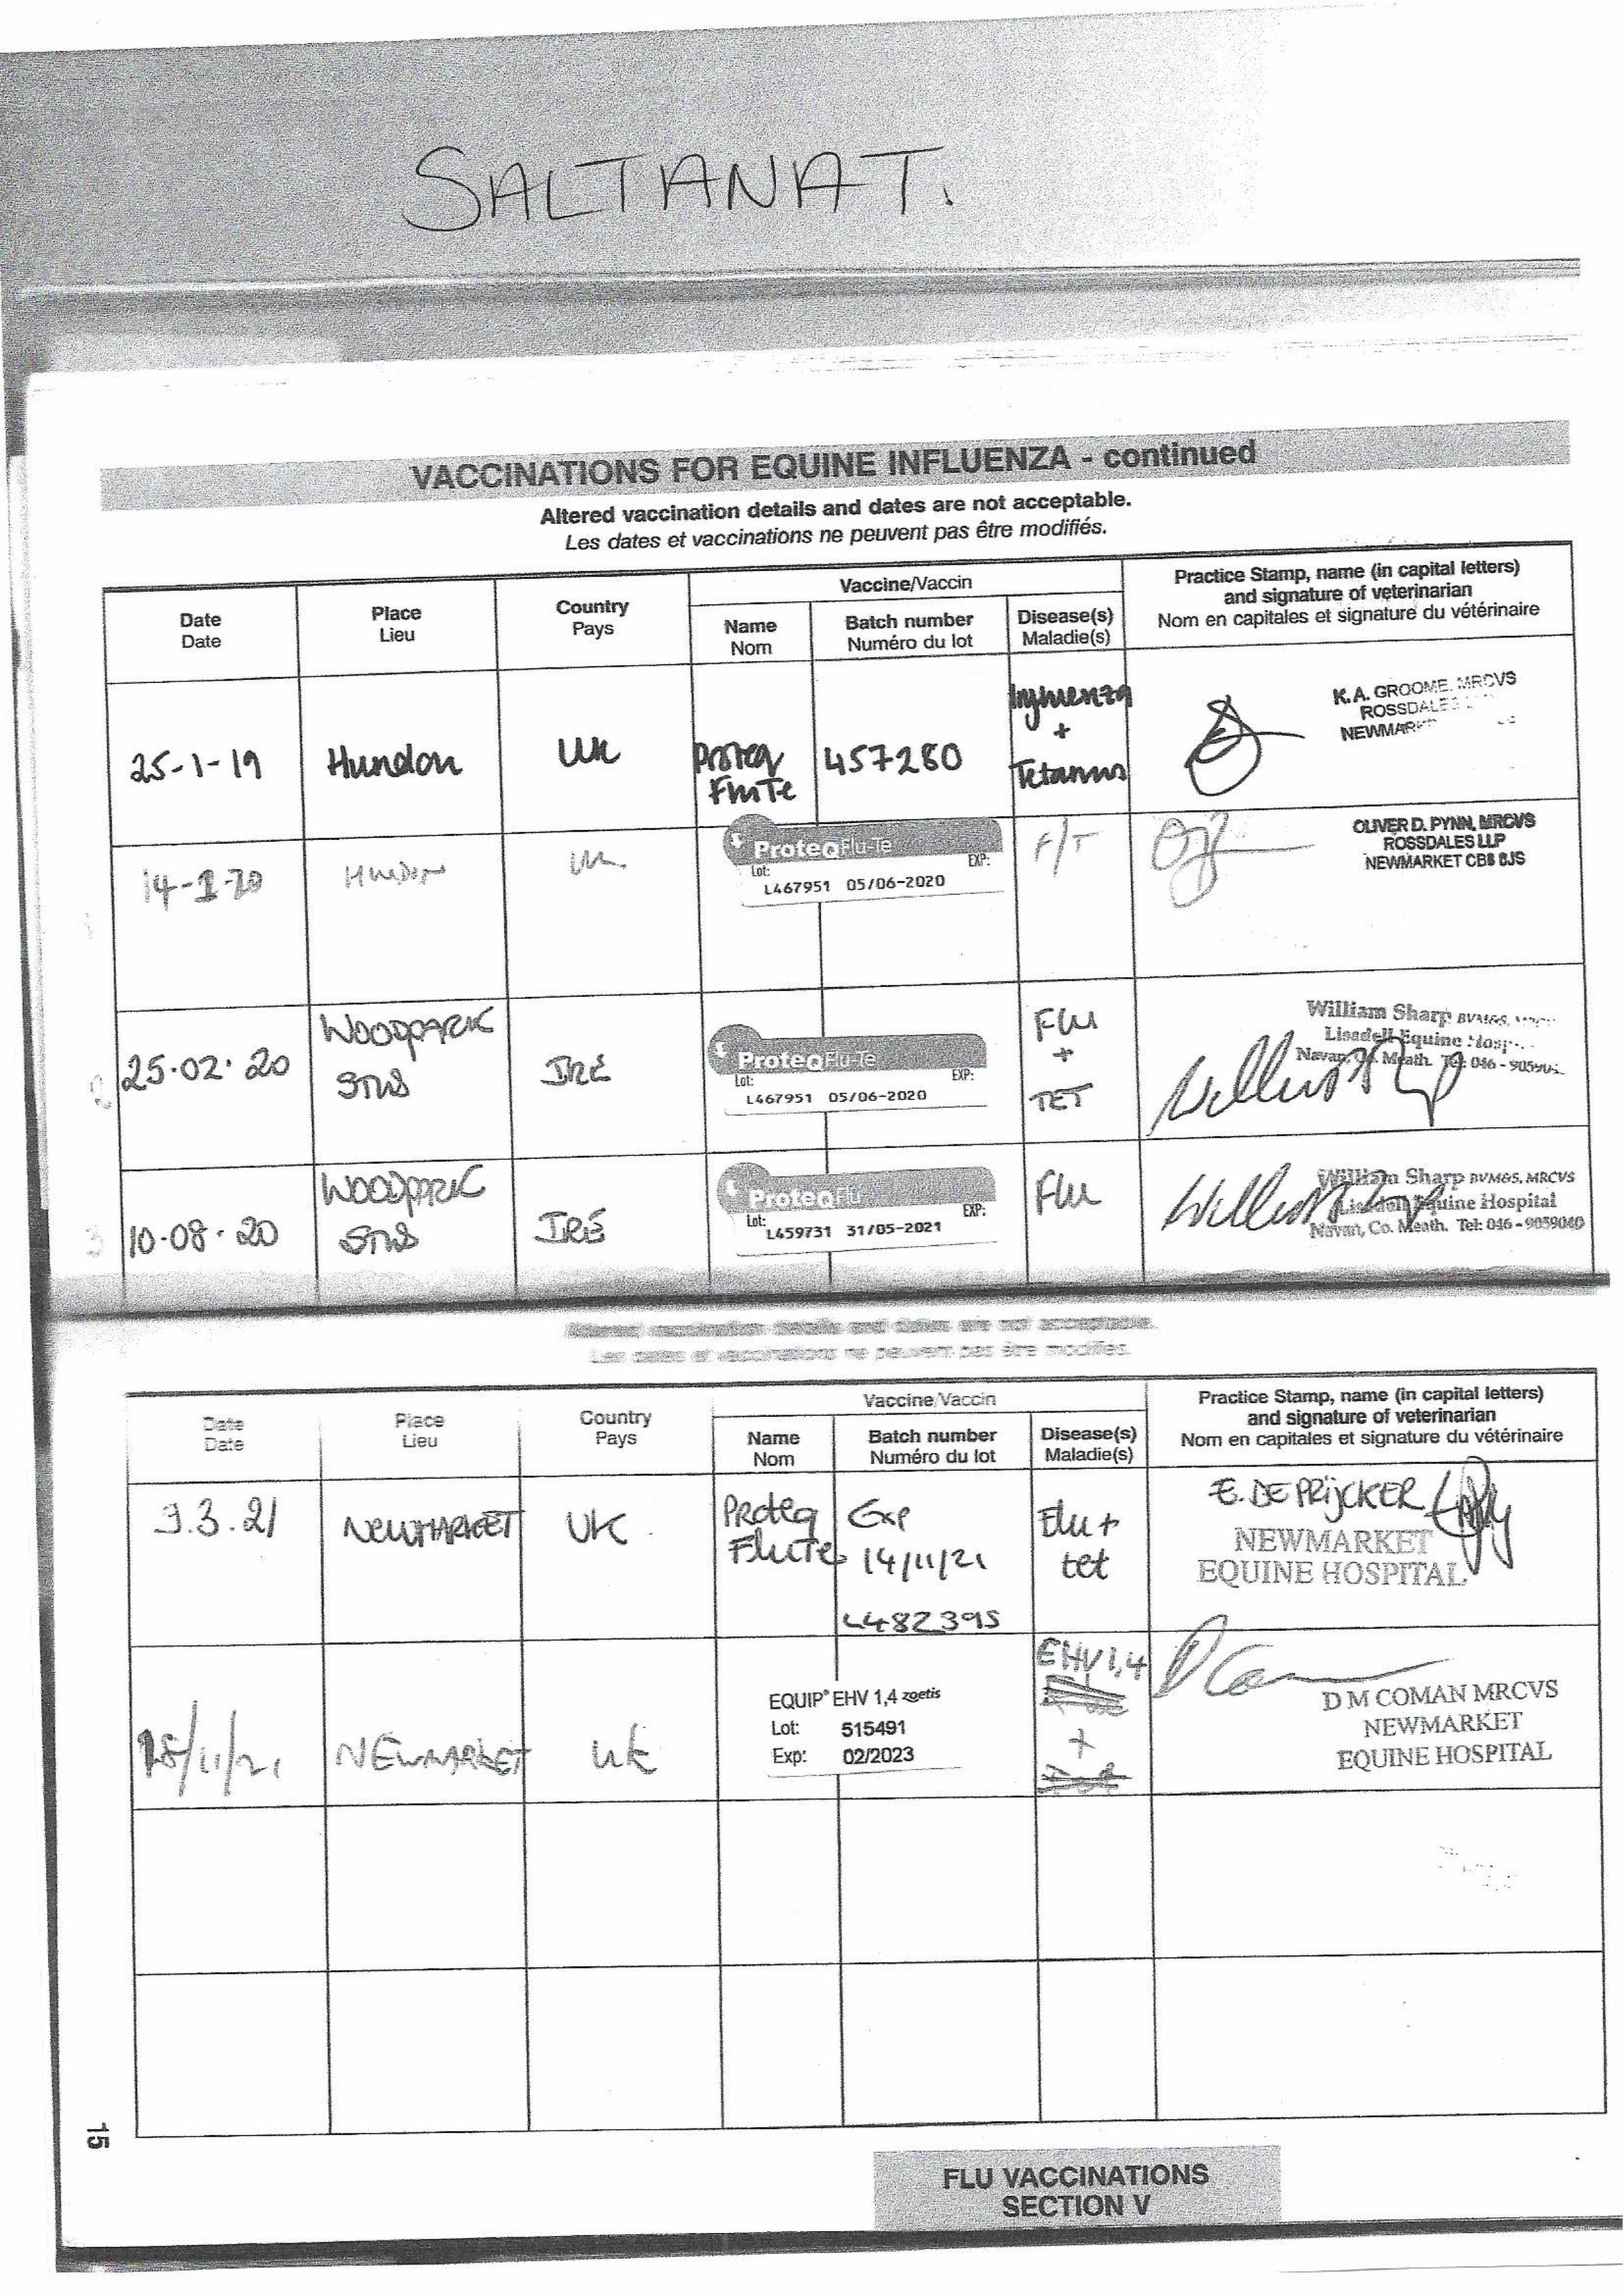 SALTANAT.
VACCINATIONS FOR EQUINE INFLUENZA - continued
Altered vaccination details and dates are not acceptable.
Les dates et vaccinations ne peuvent pas être modifiés.
Date
Date
Place
Lieu
Country
Pays
Vaccine/Vaccin
Name
Nom
Batch number
Numéro du lot
Disease(s)
Maladie(s)
Practice Stamp, name (in capital letters)
and signature of veterinarian
Nom en capitales et signature du vétérinaire
25-1-19
Hundon
UK
Proteq
FluTe
457280
Influenza
+
Tetanus
K.A. GROOME, MRCVS
ROSSDALES
NEWMARKET
Hundon
UK
ProteqFlu-Te
Lot:
EXP:
L467951 05/06-2020
F/T
OLIVER D. PYNN, MRCVS
ROSSDALES LLP
NEWMARKET CB8 8JS
2
25.02.20
WOODPARK
STUD
IRE
ProteqFlu-Te
Lot:
EXP:
L467951 05/06-2020
FLU
+
TET
William Sharp BVM&S, MRCVS
Equine
Navan, Co. Meath. Tel: 046 -
3
10.08.20
WOODPARK
STUD
IRE
ProteqFlu
Lot:
EXP:
L459731 31/05-2021
FLU
William Sharp BVM&S, MRCVS
Equine Hospital
Navan, Co. Meath. Tel: 046 - 9059040
Altered vaccination details and dates are not acceptable.
Les dates et vaccinations ne peuvent pas être modifiés.
Date
Date
Place
Lieu
Country
Pays
Vaccine/Vaccin
Name
Nom
Batch number
Numéro du lot
Disease(s)
Maladie(s)
Practice Stamp, name (in capital letters)
and signature of veterinarian
Nom en capitales et signature du vétérinaire
9.3.21
NEWMARKET
UK
Proteq
FluTe
Exp
14/11/21
L482395
Flu +
tet
E. DE PRIJCKER
NEWMARKET
EQUINE HOSPITAL
NEWMARKET
UK
EQUIP® EHV 1,4 zoetis
Lot: 515491
Exp: 02/2023
EHV 1,4
+
D M COMAN MRCVS
NEWMARKET
EQUINE HOSPITAL
15
FLU VACCINATIONS
SECTION V